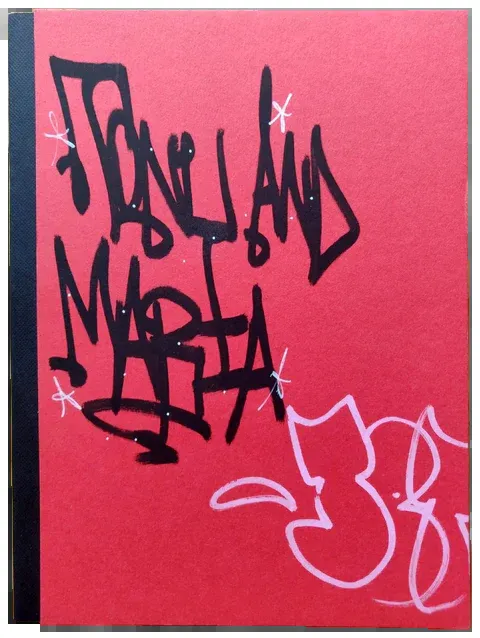 TONY AND
MARIA